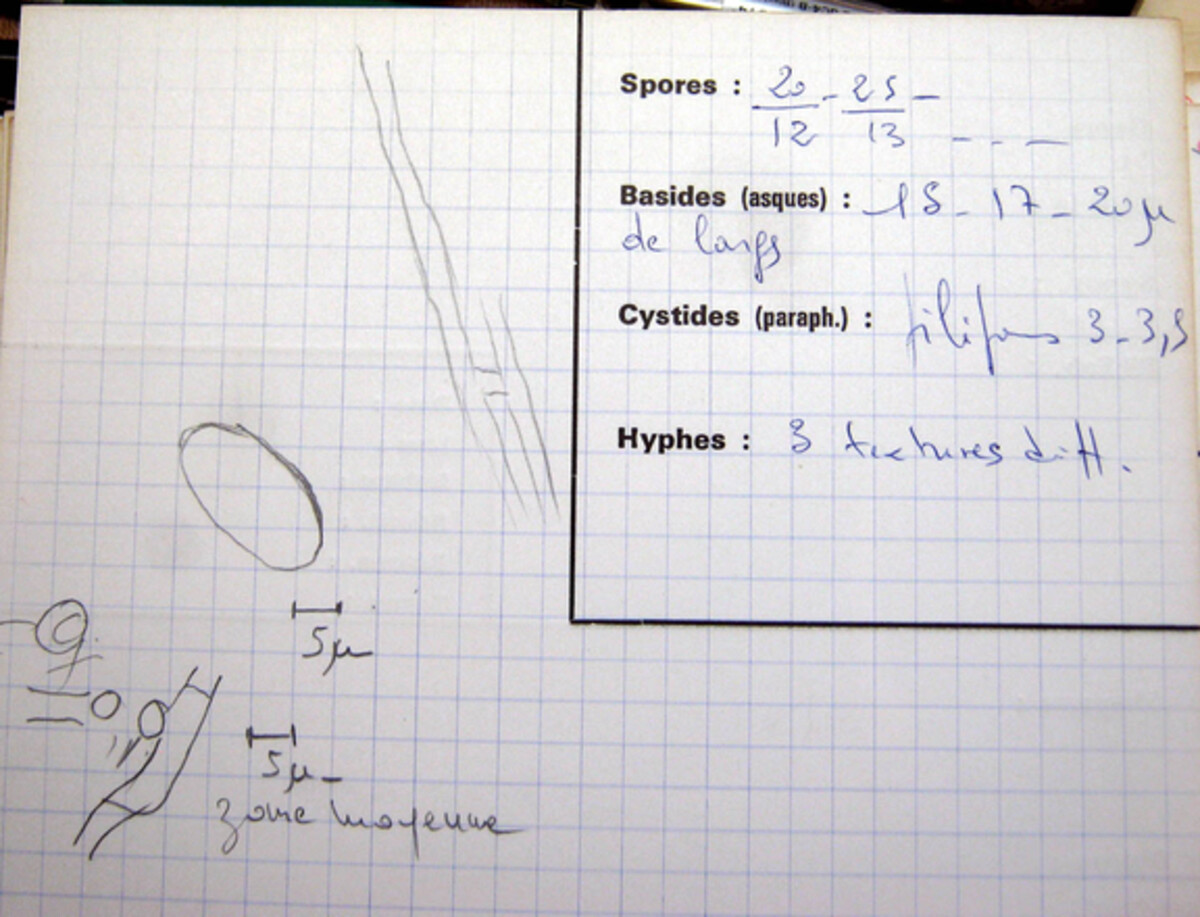 Spores : 20 - 25 -
12 13 - - -
Basides (asques) : 15 - 17 - 20 µ
de large
Cystides (paraph.) : filiformes 3 - 3,5
Hyphes : 3 textures diff.
5µ
5µ
zone moyenne